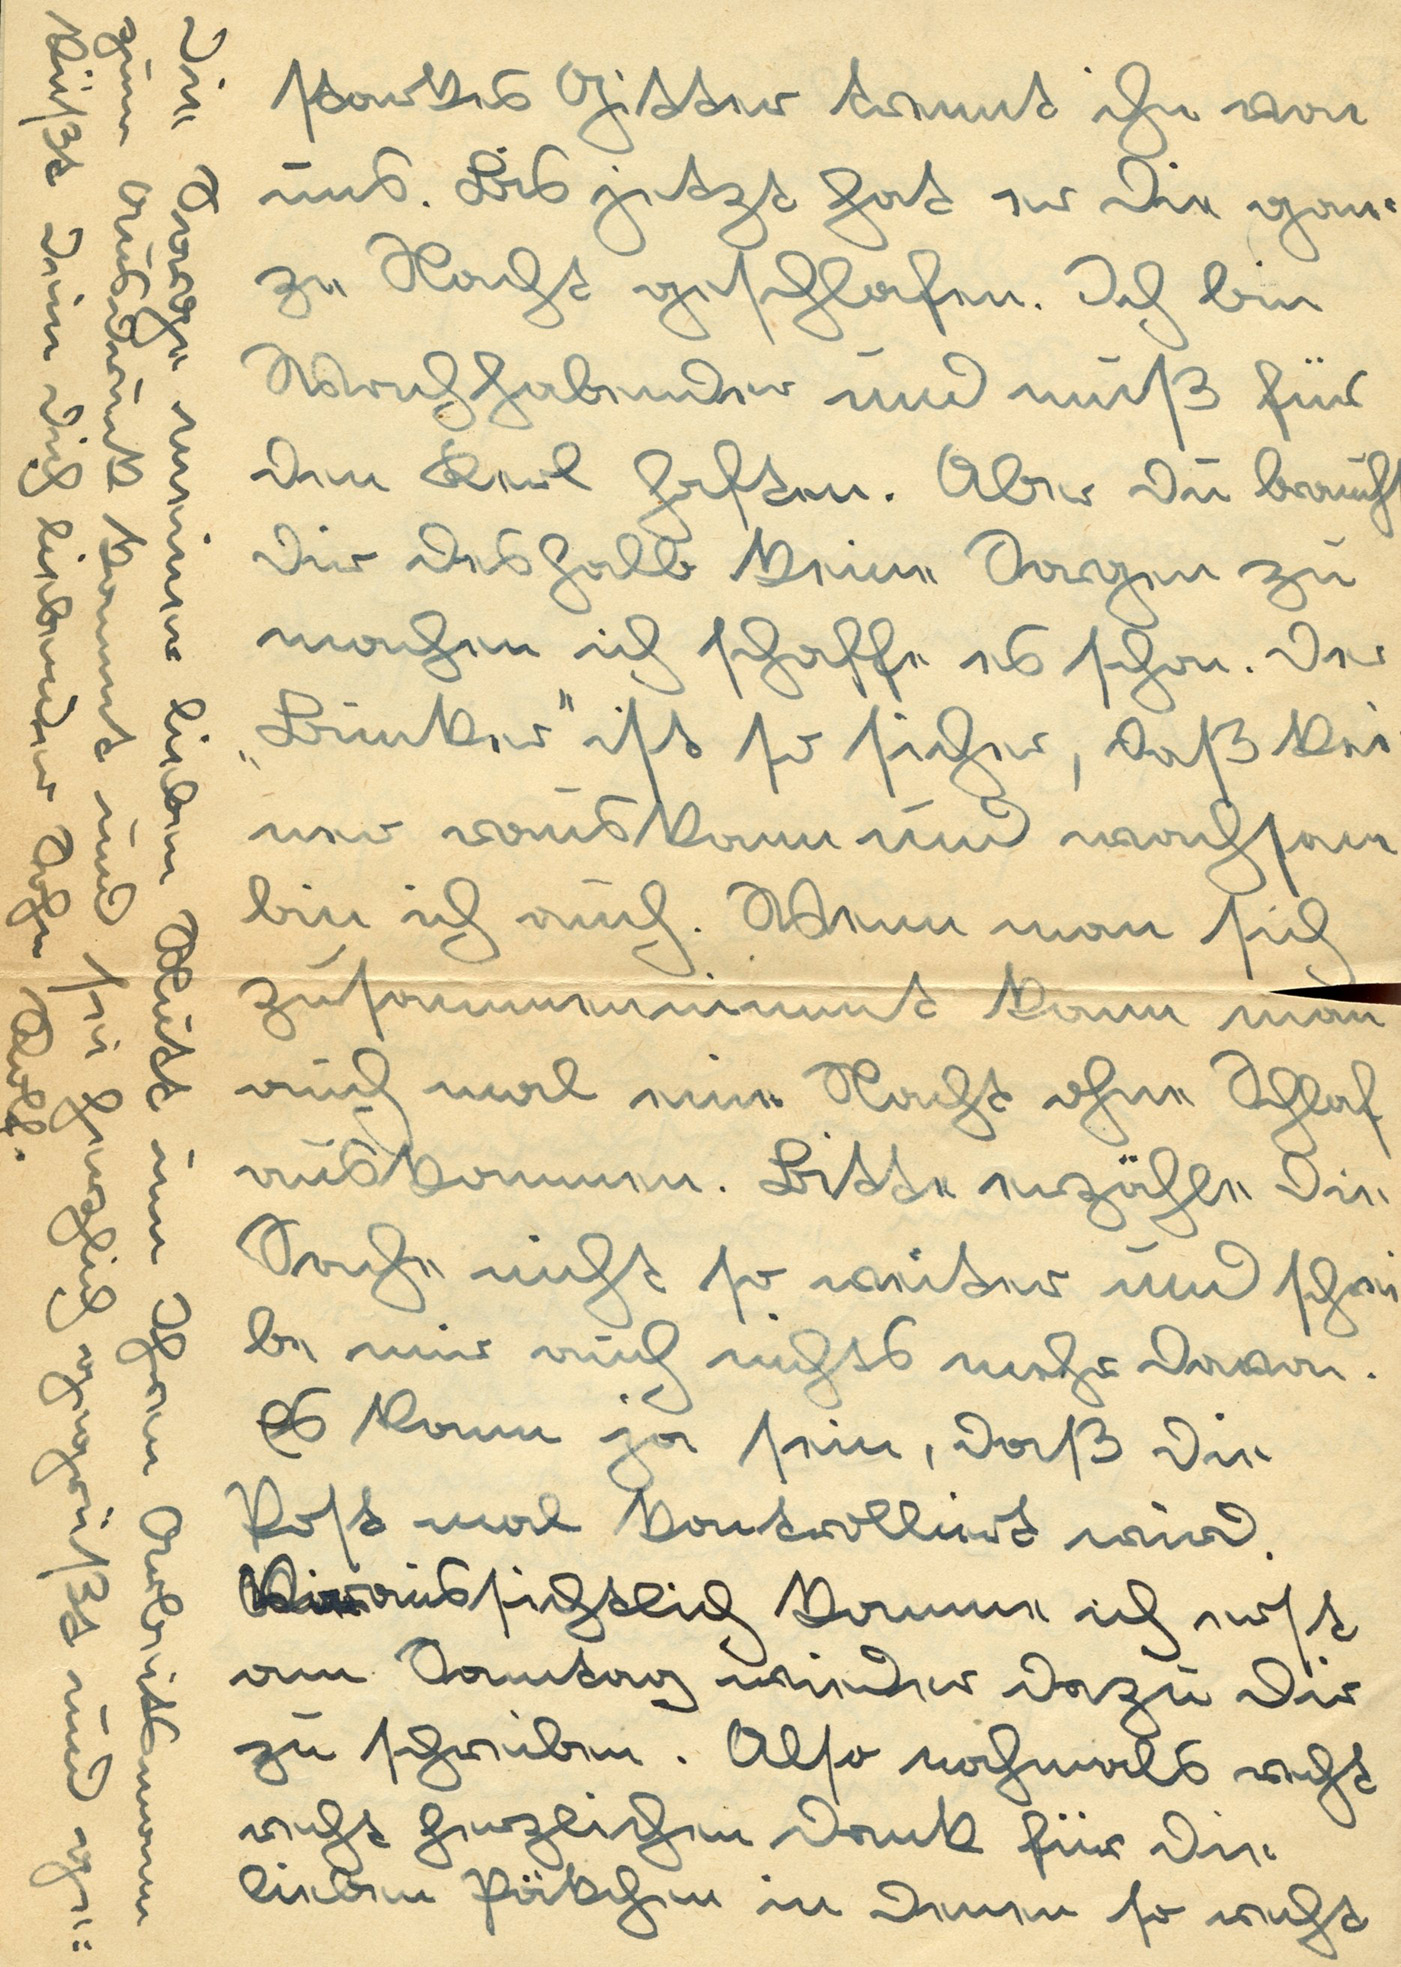 starkes Gitter trennt ihn von
uns. Bis jetzt hat er die gan-
ze Nacht geschlafen. Ich bin
Wachhabender und muß für
den Kerl haften. Aber Du brauchst
Dir deshalb keine Sorgen zu
machen ich schaffe es schon. Der
„Bunker" ist so sicher, daß kei
ner rauskann und wachsam
bin ich auch. Wenn man sich
zusammennimmt kann man
auch mal eine Nacht ohne Schlaf
auskommen. Bitte erzähle die
Sache nicht so weiter und schrei
be mir auch nichts mehr davon.
Es kann ja sein, daß die
Post mal kontrolliert wird.
Voraussichtlich komme ich erst
am Samtag wieder dazu Dir
zu schreiben. Also nochmals recht
recht herzlichen Dank für die
lieben Päckchen in denen so recht
die Sorge meiner lieben Mutt um Ihren Arbeitsmann
zum Ausdruck kommt und sei herzlich gegrüßt und ge-
küßt Dein Dich liebender Sohn Rolf.